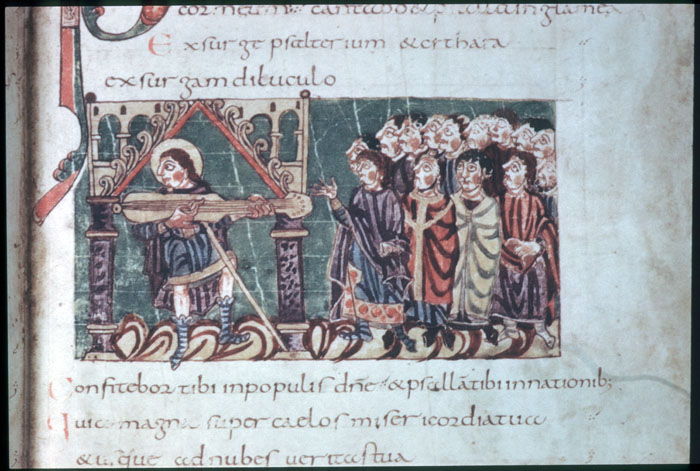 cor cantabo &
Exsurge psalterium & cithara
exsurgam diluculo
Confitebor tibi inpopulis dn̄e & psallā tibi innationib;
Quia magna super caelos misericordiatua
&usque adnubes ueritastua